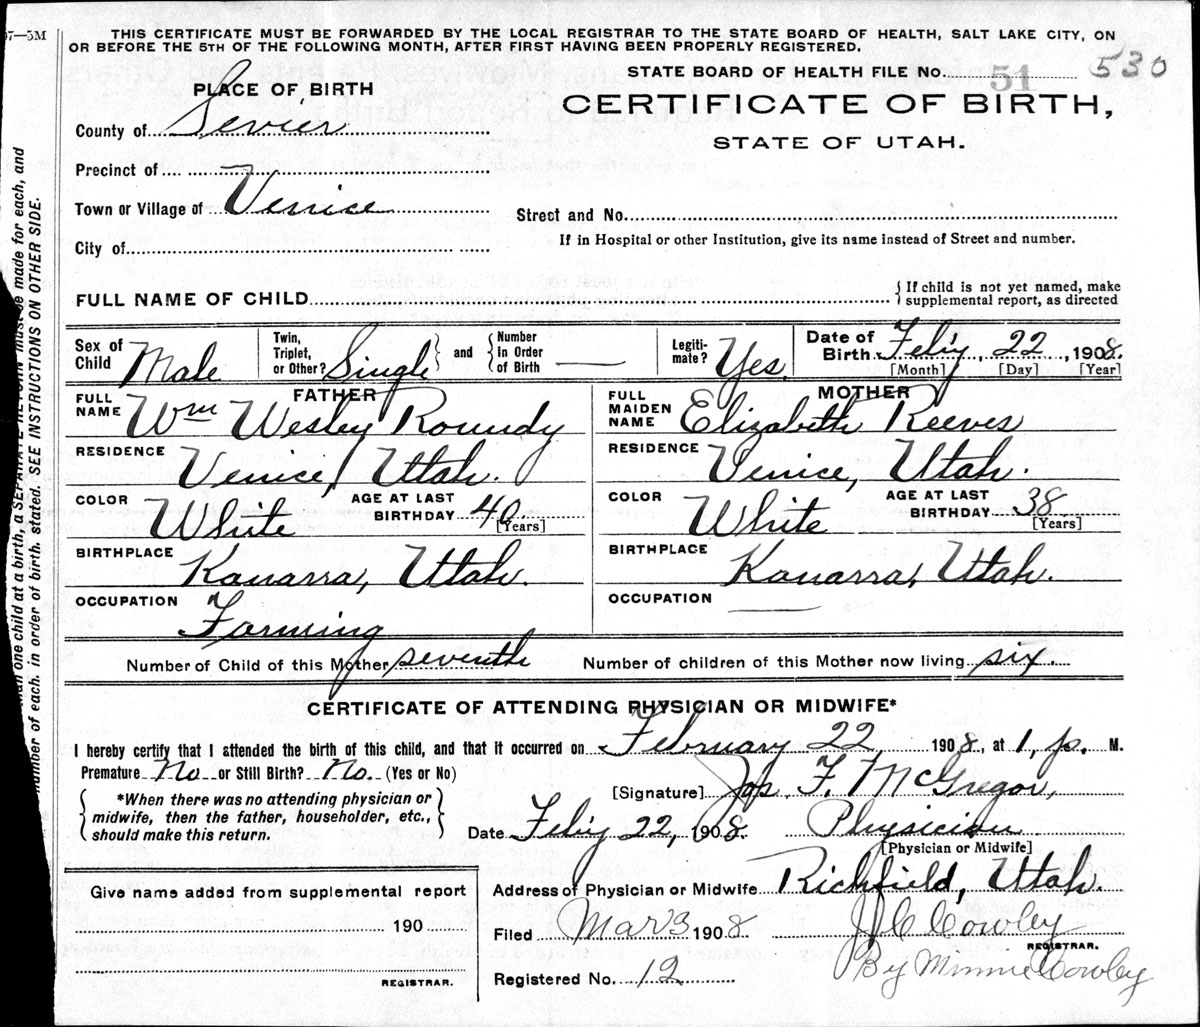 7—5M
THIS CERTIFICATE MUST BE FORWARDED BY THE LOCAL REGISTRAR TO THE STATE BOARD OF HEALTH, SALT LAKE CITY, ON
OR BEFORE THE 5TH OF THE FOLLOWING MONTH, AFTER FIRST HAVING BEEN PROPERLY REGISTERED.
STATE BOARD OF HEALTH FILE NO. 51 530
PLACE OF BIRTH
CERTIFICATE OF BIRTH,
County of Sevier
STATE OF UTAH.
Precinct of
Town or Village of Venice
Street and No.
City of
If in Hospital or other Institution, give its name instead of Street and number.
FULL NAME OF CHILD
{ If child is not yet named, make
supplemental report, as directed
Sex of Child Male
Twin, Triplet, or Other? Single } and { Number in Order of Birth —
Legiti-mate? Yes.
Date of Birth Feb'y 22, 1908.
[Month] [Day] [Year]
FATHER
FULL NAME Wm Wesley Roundy
RESIDENCE Venice, Utah.
COLOR White
AGE AT LAST BIRTHDAY 40 [Years]
BIRTHPLACE Kanarra, Utah.
OCCUPATION Farming
MOTHER
FULL MAIDEN NAME Elizabeth Reeves
RESIDENCE Venice, Utah.
COLOR White
AGE AT LAST BIRTHDAY 38 [Years]
BIRTHPLACE Kanarra, Utah.
OCCUPATION —
Number of Child of this Mother seventh Number of children of this Mother now living six.
CERTIFICATE OF ATTENDING PHYSICIAN OR MIDWIFE*
I hereby certify that I attended the birth of this child, and that it occurred on February 22, 1908, at 1, p. M.
Premature No or Still Birth? No. (Yes or No)
{ *When there was no attending physician or
midwife, then the father, householder, etc.,
should make this return. }
[Signature] Jos. F. McGregor,
Date Feb'y 22, 1908. Physician
[Physician or Midwife]
Address of Physician or Midwife Richfield, Utah.
Give name added from supplemental report
190
REGISTRAR.
Filed Mar 3 1908 J C Cowley
REGISTRAR.
By Minnie Cowley
Registered No. 12
than one child at a birth, a SEPARATE RETURN must be made for each, and
number of each, in order of birth, stated. SEE INSTRUCTIONS ON OTHER SIDE.